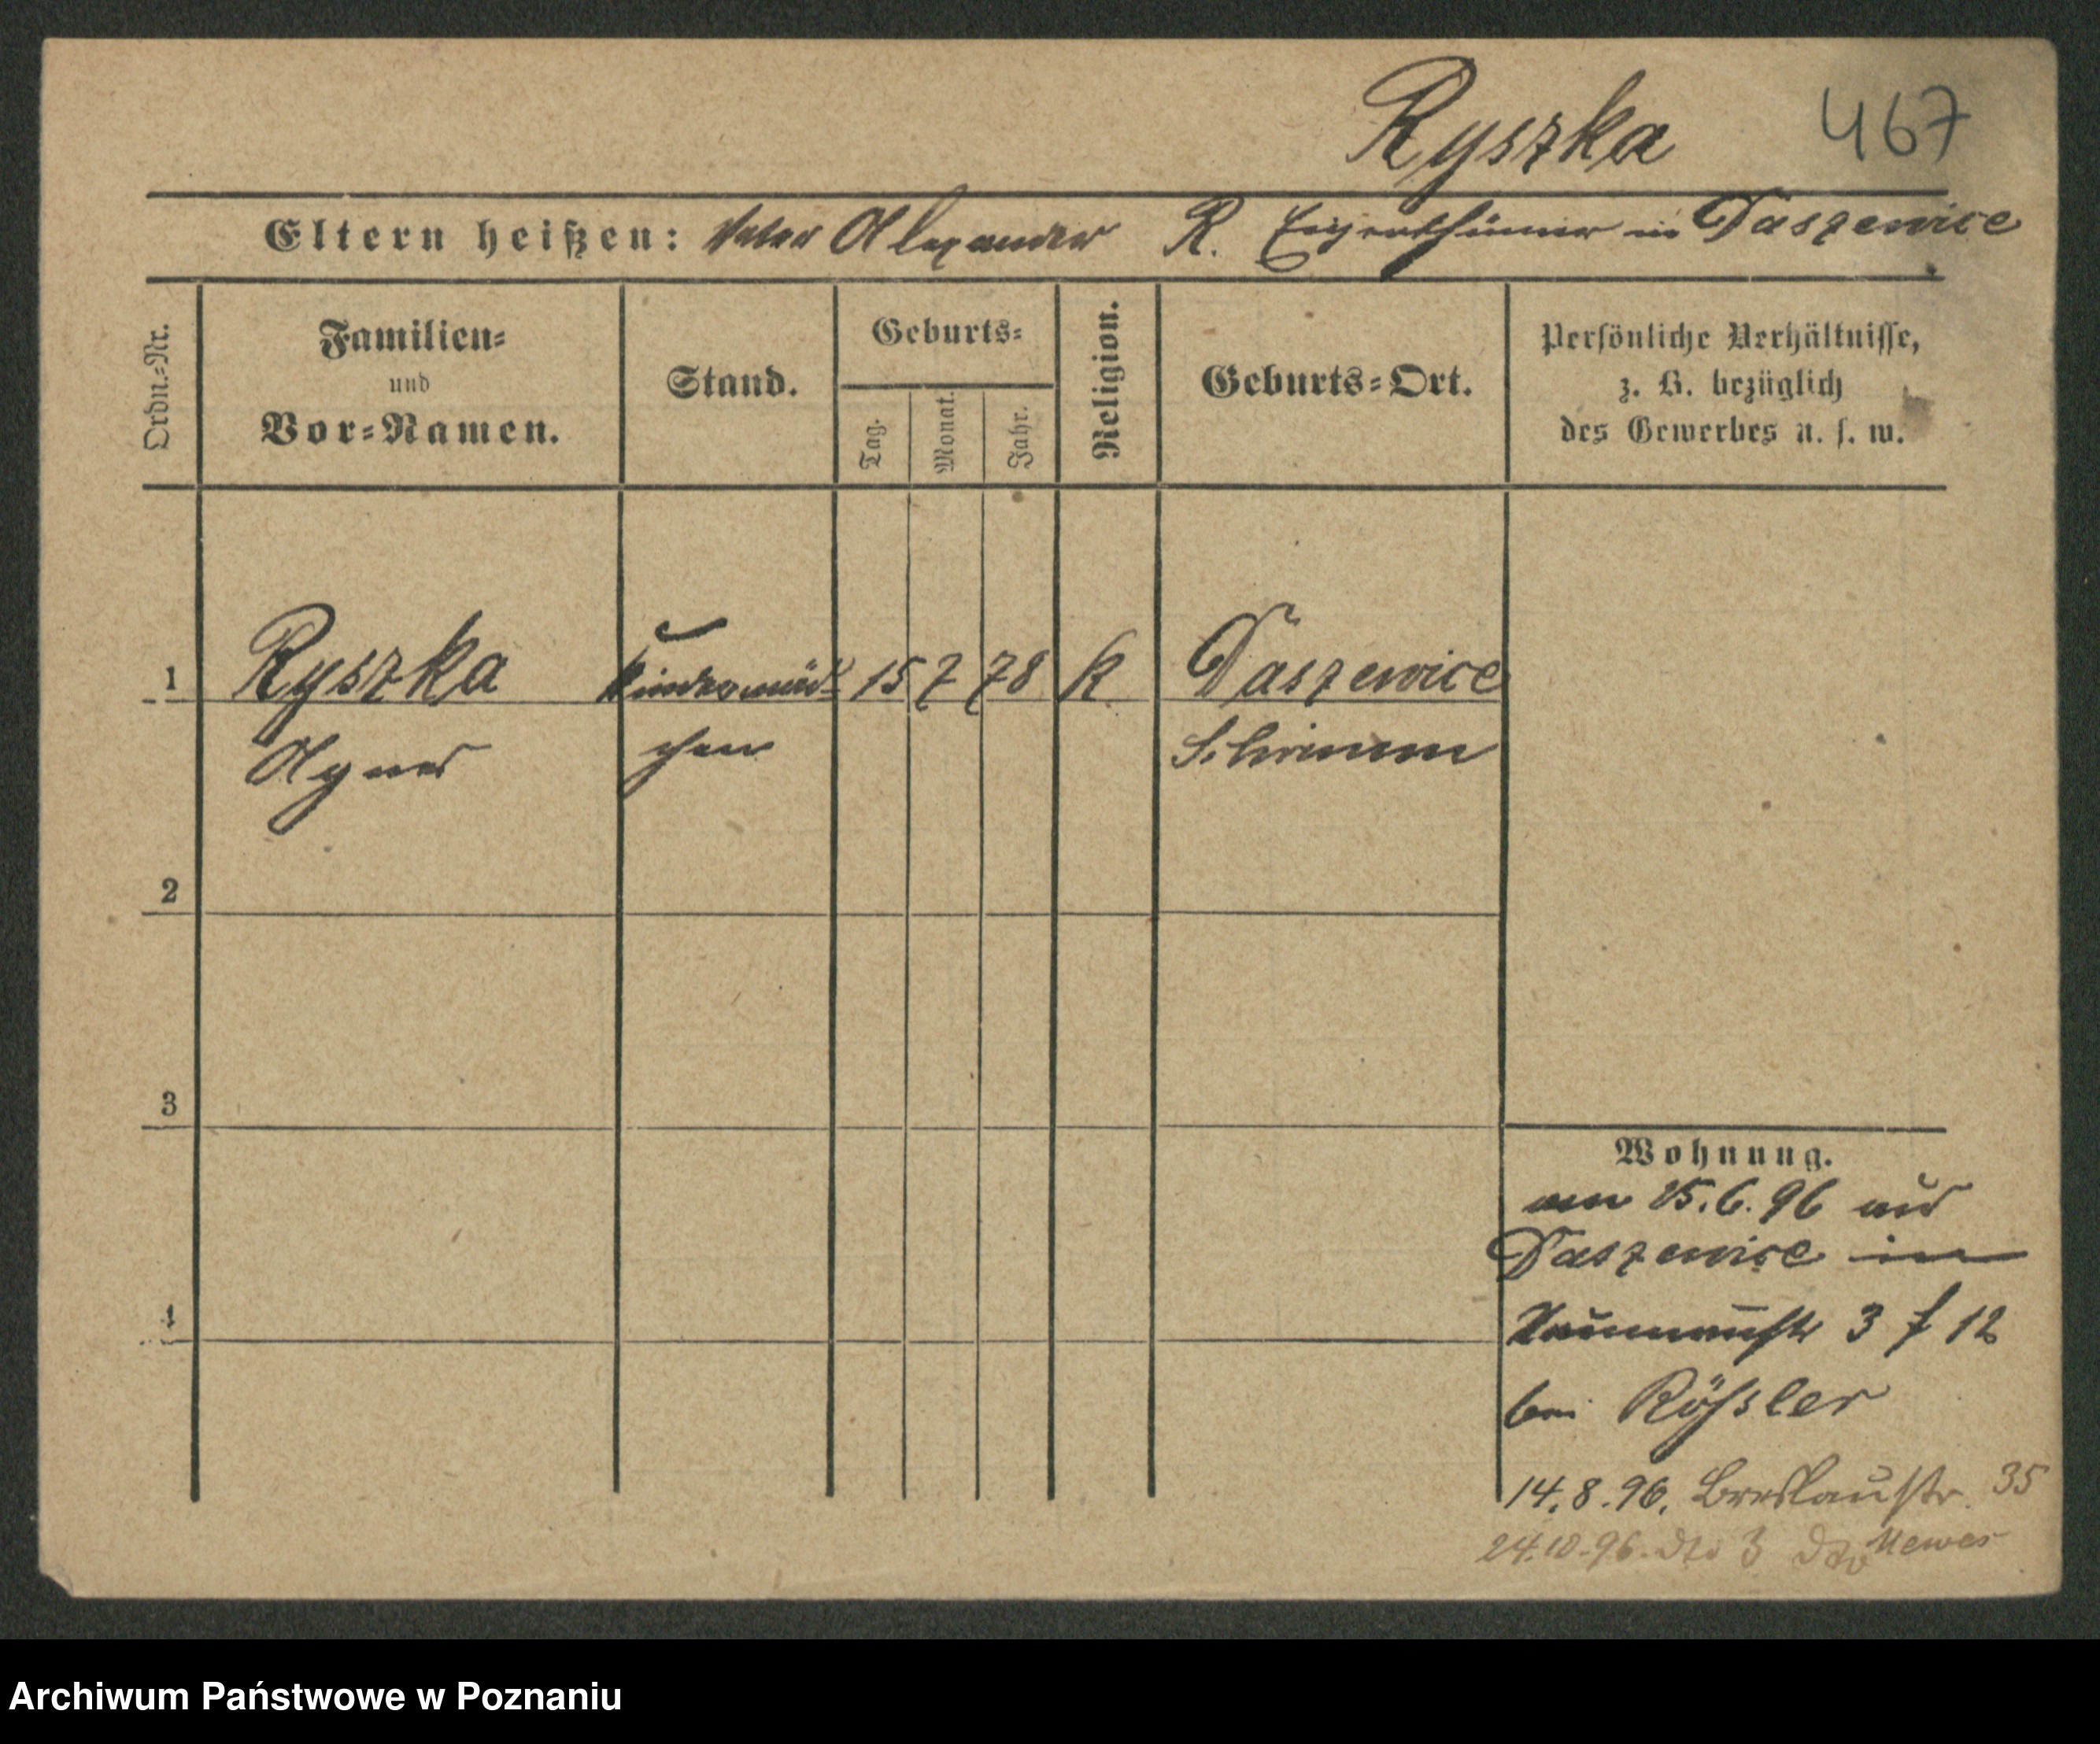 Ryszka 467
Eltern heißen: Vater Alexander R. Eigenthümer in Daszewice
Ordn.-Nr.
Familien-
und
Vor-Namen.
Stand.
Geburts-
Tag.
Monat.
Jahr.
Religion.
Geburts-Ort.
Persönliche Verhältnisse,
z. B. bezüglich
des Gewerbes u. s. w.
1 Ryszka Kindermäd- 15 7 78 K Daszewice
Agnes chen Schrimm
2
3
4
Wohnung.
am 15.6.96 aus
Daszewice in
Naumannstr 3 f 12
bei Rößler
14.8.96. Breslaustr. 35
24.10.96. dto 3 Mewes
Archiwum Państwowe w Poznaniu